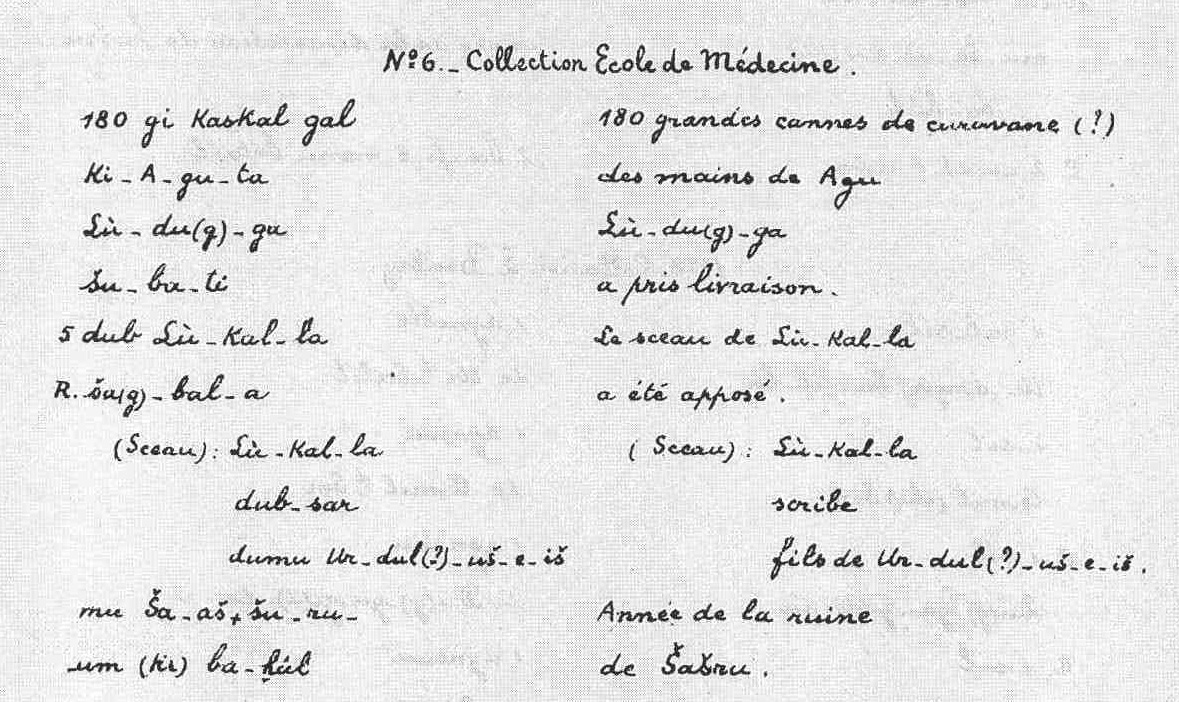 Nº6._ Collection Ecole de Médecine.
180 gi Kaskal gal 180 grandes cannes de caravane (?)
Ki-A-gu-ta des mains de Agu
Lù-du(g)-ga Lù-du(g)-ga
šu-ba-ti a pris livraison.
5 dub Lù-Kal-la Le sceau de Lù-Kal-la
R. ša(g)-bal-a a été apposé.
(Sceau): Lù-Kal-la (Sceau): Lù-Kal-la
dub-sar scribe
dumu Ur-dul(?)-uš-e-iš fils de Ur-dul(?)-uš-e-iš.
mu Ša-aš+šu-ru- Année de la ruine
-um (ki) ba-ḫúl de Šašru.